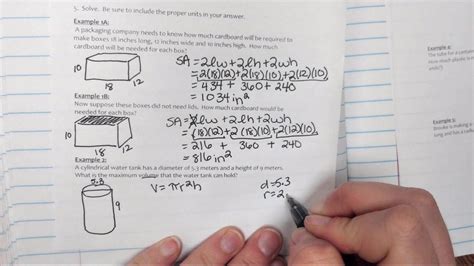 5. Solve. Be sure to include the proper units in your answer.
Example 1A:
A packaging company needs to know how much cardboard will be required to
make boxes 18 inches long, 12 inches wide and 10 inches high. How much
cardboard will be needed for each box?
SA = 2lw + 2lh + 2wh
= 2(18)(12) + 2(18)(10) + 2(12)(10)
= 434 + 360 + 240
= 1034 in²
10
18
12
Example 1B:
Now suppose these boxes did not need lids. How much cardboard would be
needed for each box?
SA = 2lw + 2lh + 2wh
= (18)(12) + 2(18)(10) + 2(12)(10)
= 216 + 360 + 240
= 816 in²
10
18
12
Example 2:
A cylindrical water tank has a diameter of 5.3 meters and a height of 9 meters.
What is the maximum volume that the water tank can hold?
5.3
9
V = πr²h
d = 5.3
r = 2.